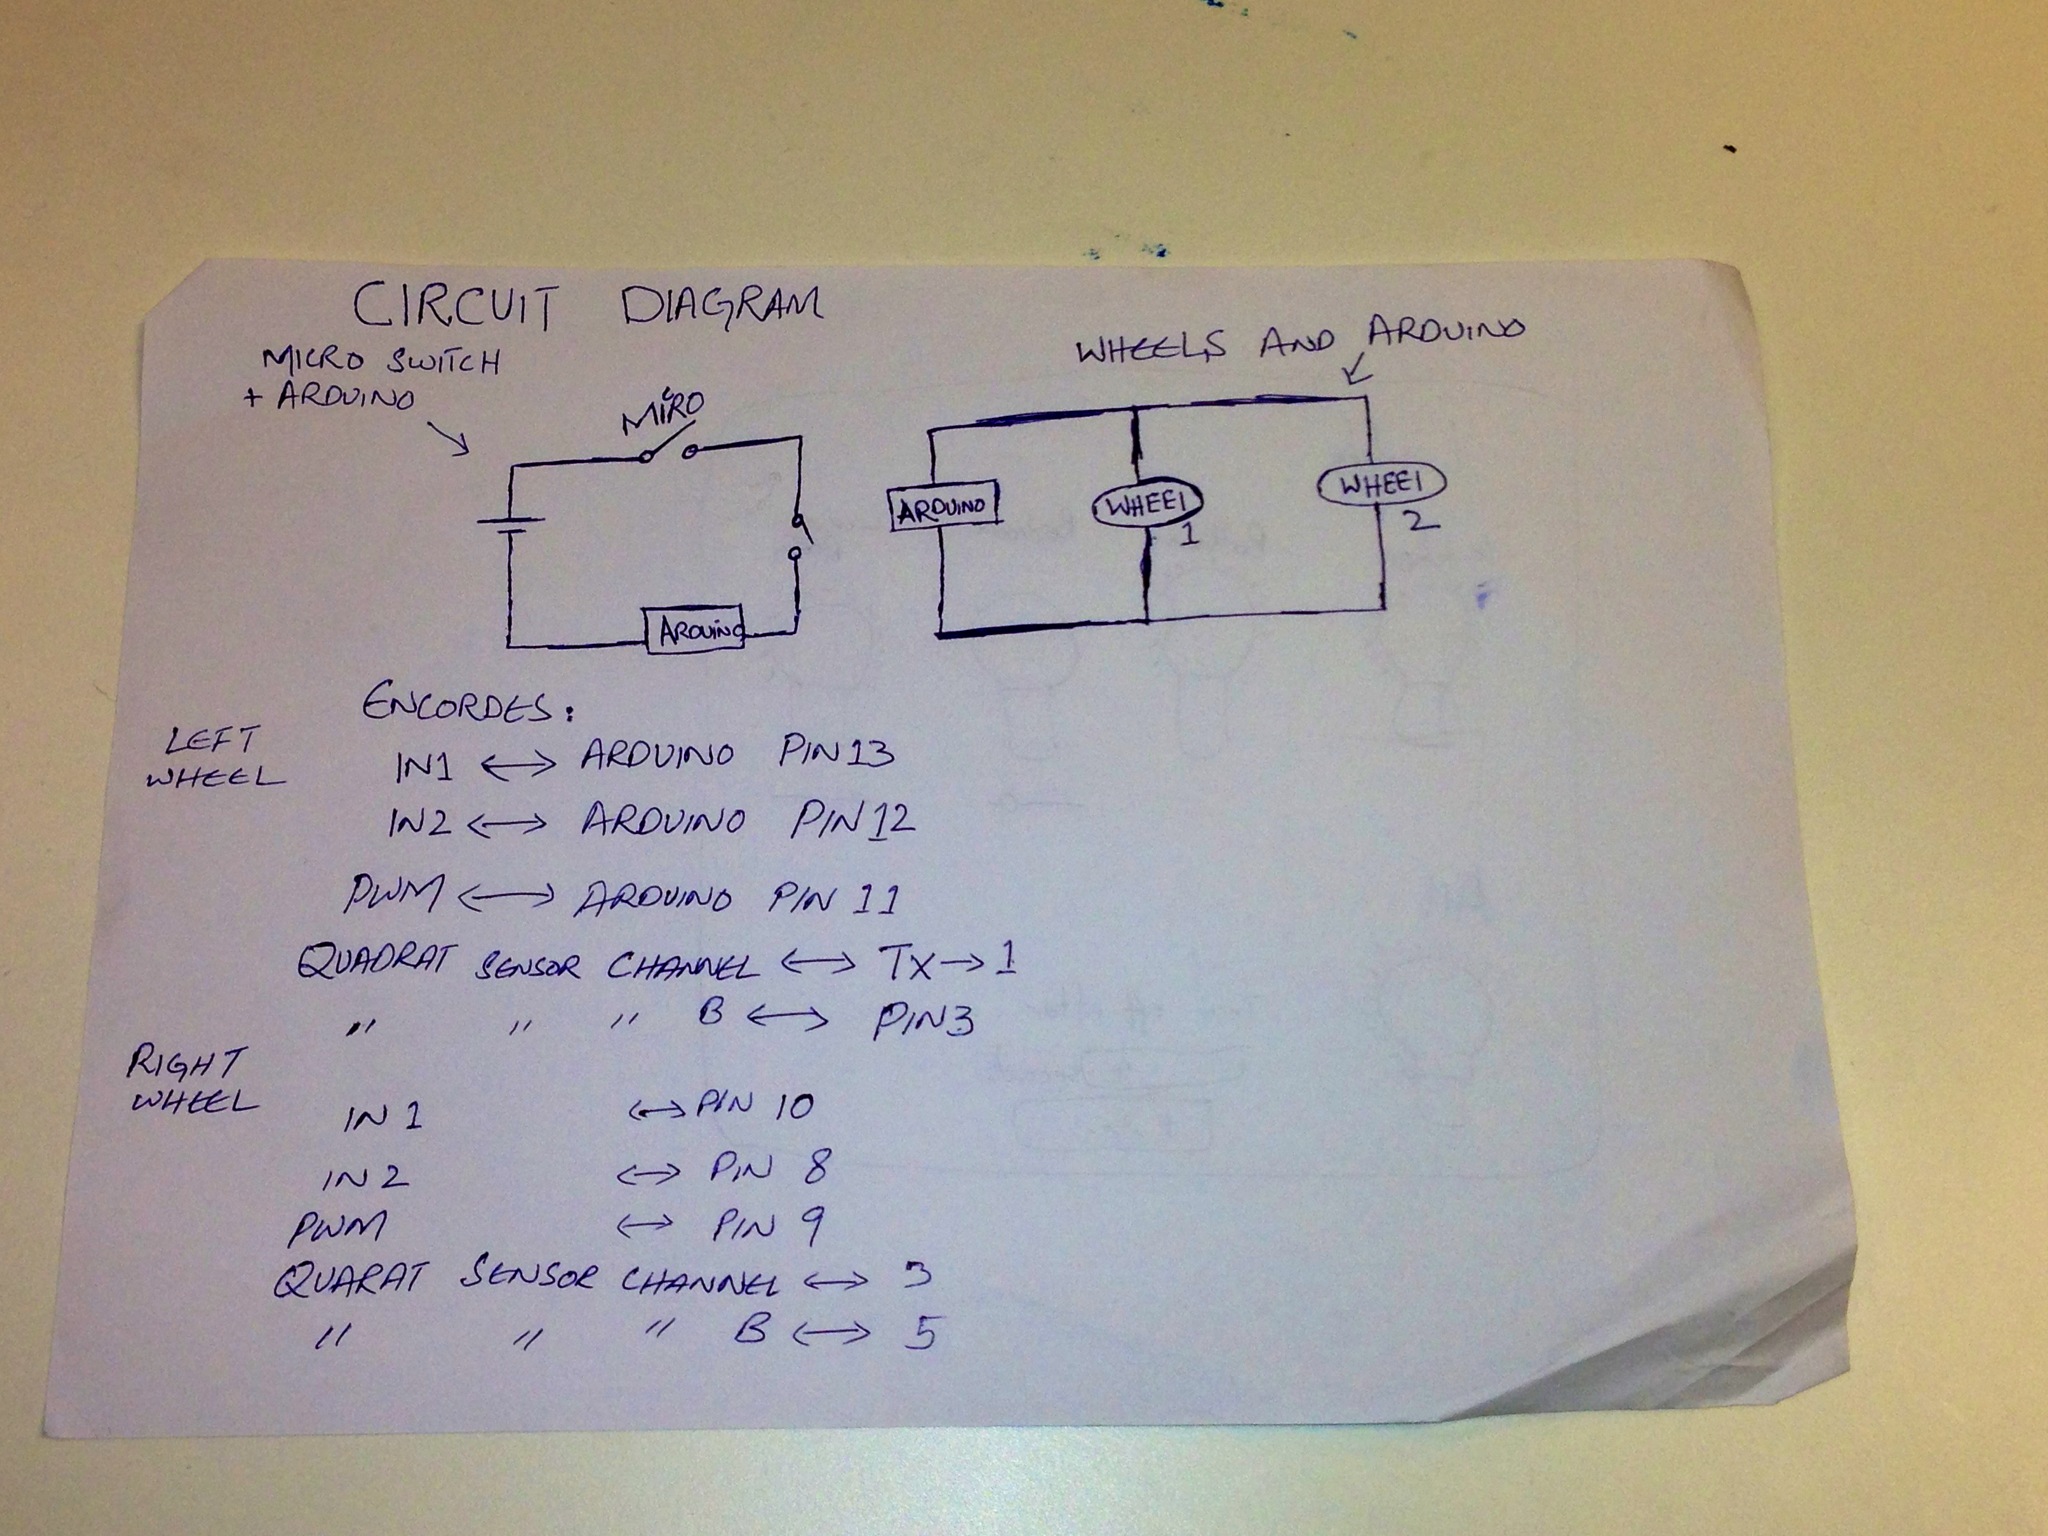 CIRCUIT DIAGRAM
MICRO SWITCH
+ ARDUINO
MICRO
ARDUINO
WHEELS AND ARDUINO
ARDUINO
WHEEL
1
WHEEL
2
ENCORDES:
LEFT
WHEEL
IN1 ↔ ARDUINO PIN 13
IN2 ↔ ARDUINO PIN 12
PWM ↔ ARDUINO PIN 11
QUADRAT SENSOR CHANNEL ↔ Tx → 1
" " " B ↔ PIN3
RIGHT
WHEEL
IN 1 ↔ PIN 10
IN 2 ↔ PIN 8
PWM ↔ PIN 9
QUARAT SENSOR CHANNEL ↔ 3
" " " B ↔ 5